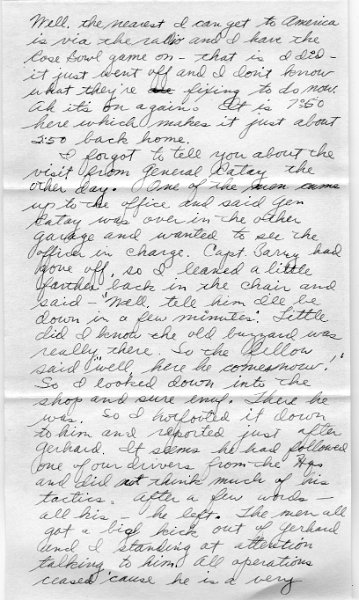 Well, the nearest I can get to America
is via the radio and I have the
Rose Bowl game on - that is I did -
it just went off and I don't know
what they're fixing to do now.
Ah it's on again. It is 7:50
here which makes it just about
2:50 back home.
I forgot to tell you about the
visit from General Gatay the
other day. One of the men came
up to the office and said Gen
Gatay was over in the other
garage and wanted to see the
officer in charge. Capt. Barry had
gone off, so I leaned a little
farther back in the chair and
said - "Well, tell him I'll be
down in a few minutes". Little
did I know the old buzzard was
really there. So the fellow
said "well, here he comes now!"
So I looked down into the
shop and sure enuf. There he
was. So I hotfooted it down
to him and reported just after
Gerhard. It seems he had followed
one of our drivers from the Hqs
and did not think much of his
tactics. After a few words -
all his - he left. The men all
got a big kick out of Gerhard
and I standing at attention
talking to him. All operations
ceased 'cause he is a very